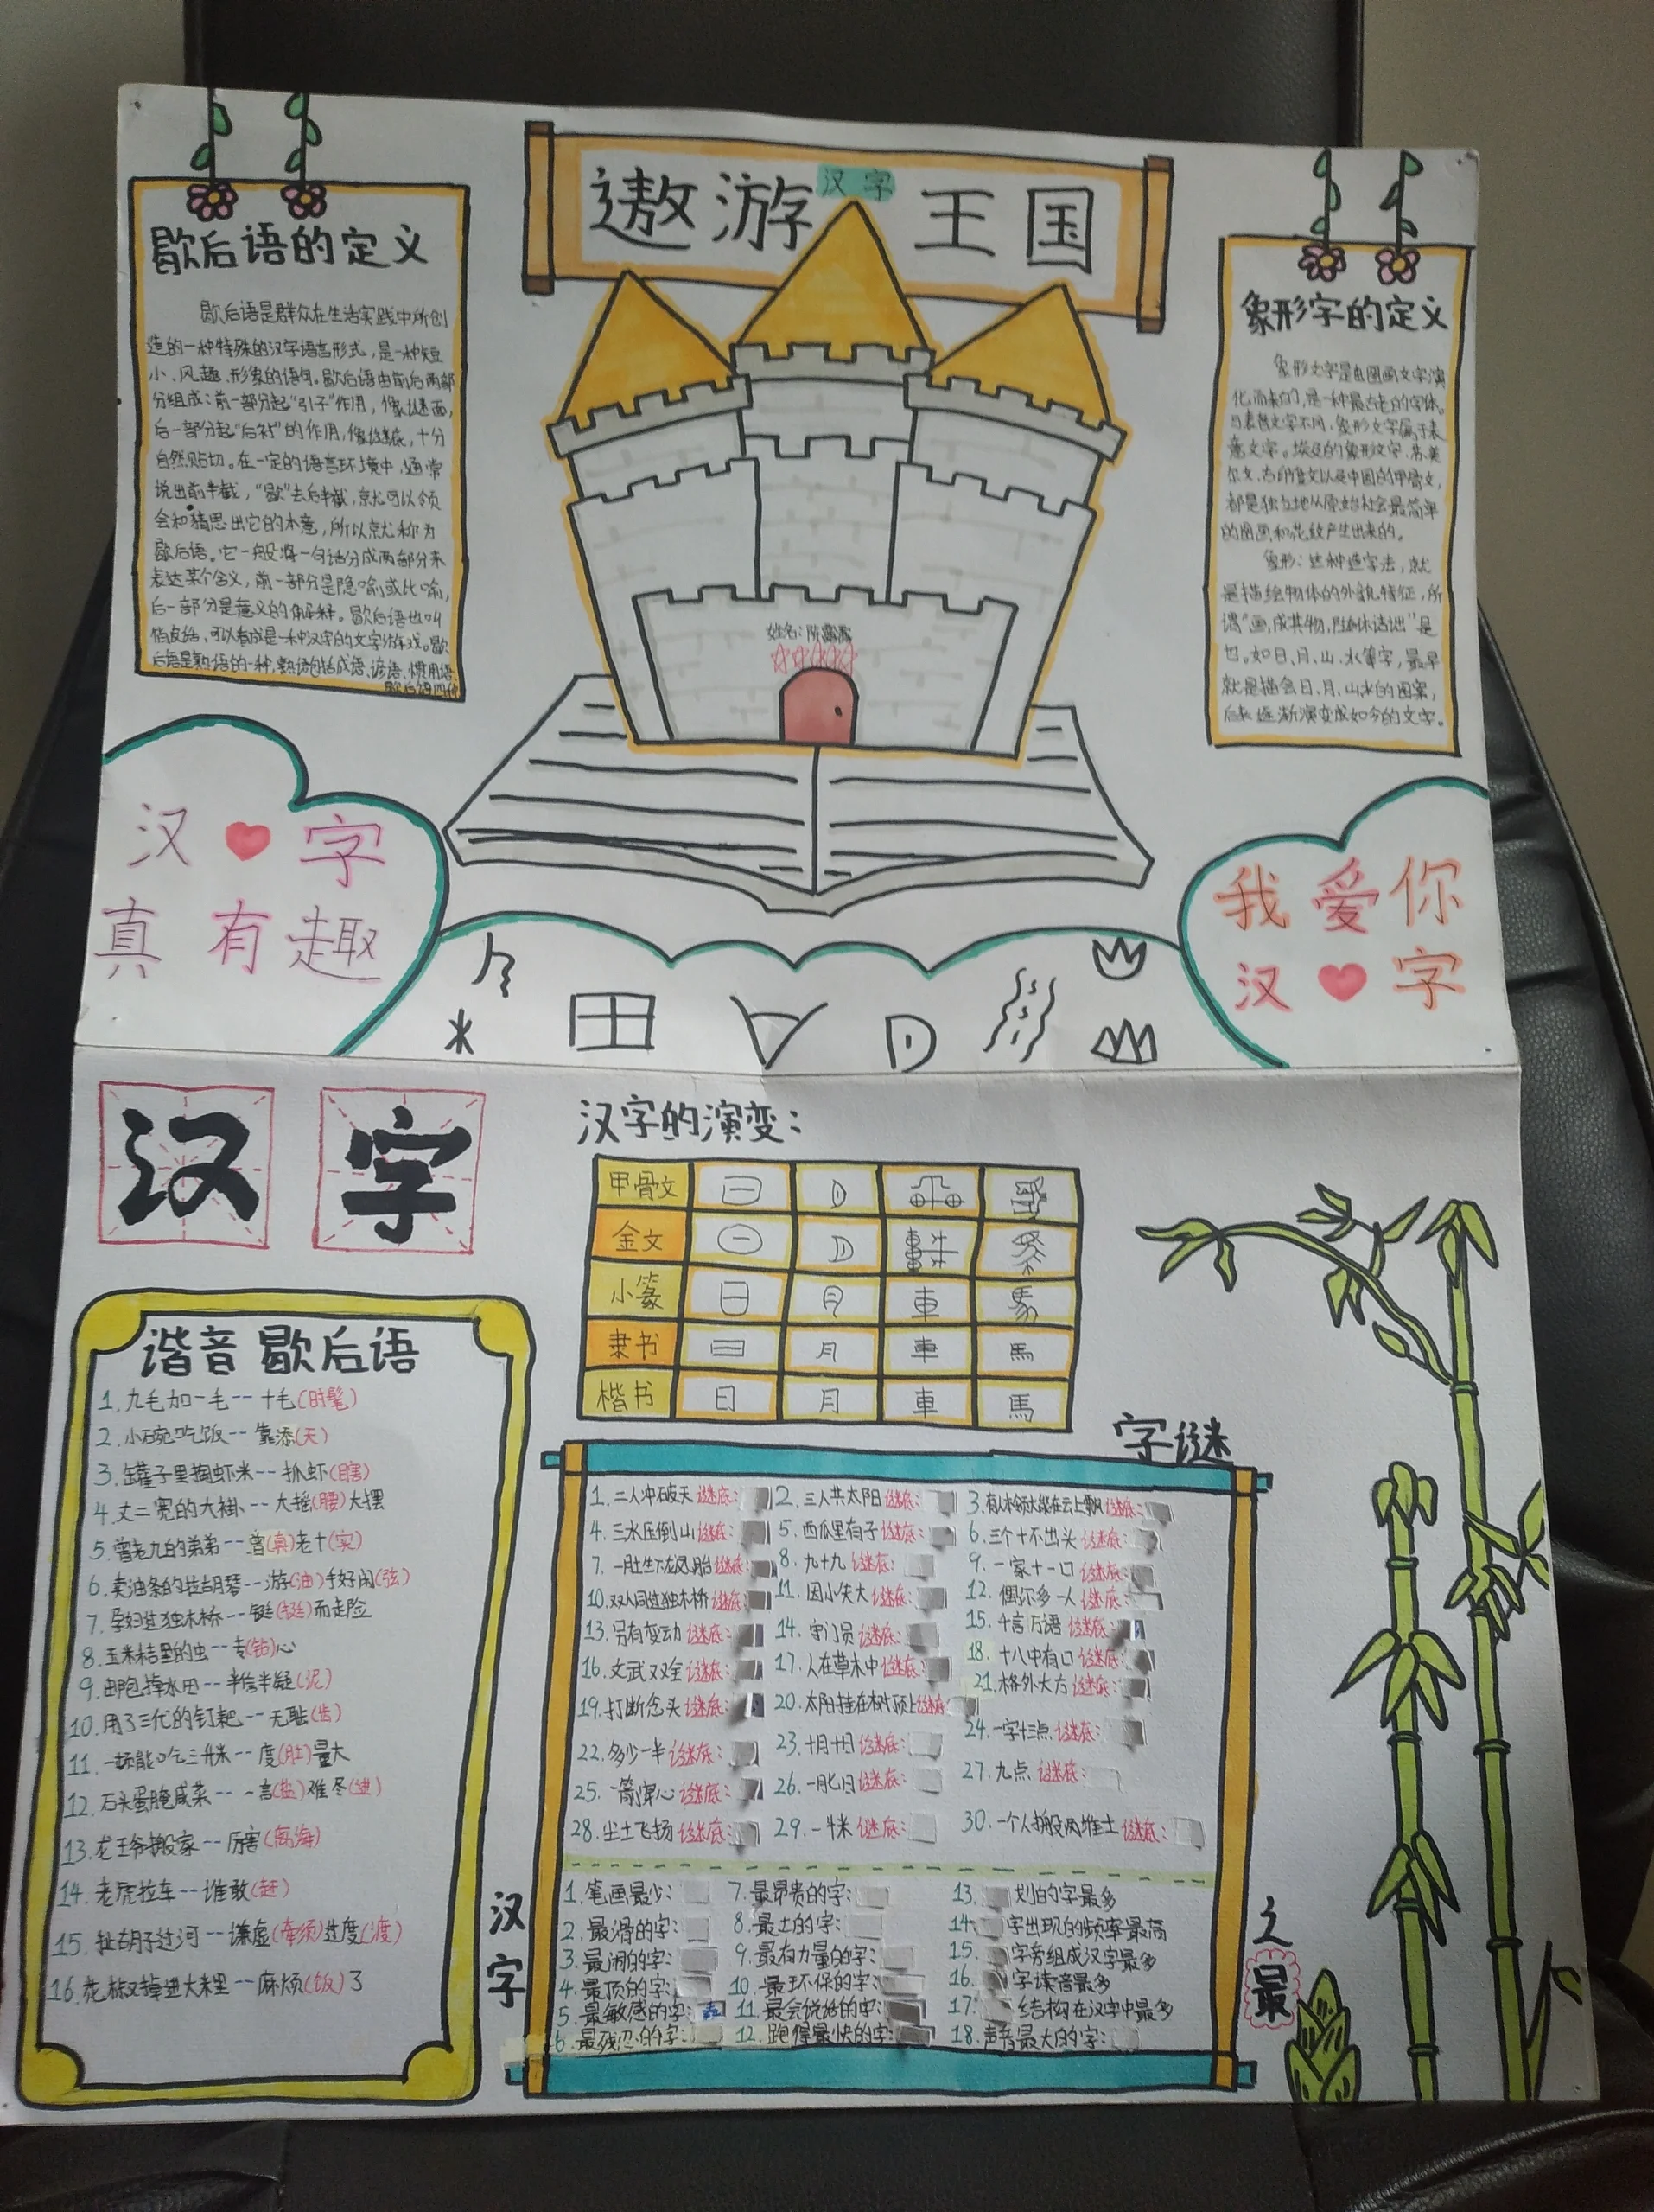 遨游汉字王国
歇后语的定义
歇后语是群众在生活实践中所创
造的一种特殊的汉字语言形式，是一种短
小、风趣、形象的语句。歇后语由前后两部
分组成：前一部分起“引子”作用，像谜面，
后一部分起“后衬”的作用，像谜底，十分
自然贴切。在一定的语言环境中，通常
说出前半截，“歇”去后半截，就可以领
会和猜思出它的本意，所以就称为
歇后语。它一般将一句话分成两部分来
表达某个含义，前一部分是隐喻或比喻，
后一部分是意义的解释。歇后语也叫
俏皮话，可以看成是一种汉字的文字游戏。歇
后语是熟语的一种，熟语包括成语、谚语、惯用语、
歇后语四种
姓名：陈露露
象形字的定义
象形文字是由图画文字演
化而来的，是一种最古老的字体。
与表音文字不同，象形文字属于表
意文字。埃及的象形文字、苏美
尔文、古印度文以及中国的甲骨文，
都是独立地从原始社会最简单
的图画和花纹产生出来的。
象形：这种造字法，就
是描绘物体的外貌特征，所
谓“画成其物，随体诘诎”是
也。如日、月、山、水等字，最早
就是描绘日、月、山水的图案，
后来逐渐演变成如今的文字。
汉字
真有趣
我爱你
汉字
田
汉字
汉字的演变：
甲骨文
金文
小篆 日 月 車
隶书 日 月 車 馬
楷书 日 月 車 馬
谐音歇后语
1. 九毛加一毛--十毛(时髦)
2. 小碗吃饭--靠添(天)
3. 罐子里掏虾米--抓虾(瞎)
4. 丈二宽的大褂--大摇(腰)大摆
5. 曾老九的弟弟--曾(真)老十(实)
6. 卖油条的拉胡琴--游(油)手好闲(弦)
7. 孕妇过独木桥--铤(挺)而走险
8. 玉米秸里的虫--专(钻)心
9. 邮包掉水田--半信半疑(泥)
10. 用了三代的钉耙--无耻(齿)
11. 一顿能吃三升米--度(肚)量大
12. 石头蛋腌咸菜--一言(盐)难尽(进)
13. 龙王爷搬家--厉害(离海)
14. 老虎拉车--谁敢(赶)
15. 扯胡子过河--谦虚(牵须)过度(渡)
16. 花椒掉进大米里--麻烦(饭)了
字谜
1. 二人冲破天 谜底： 2. 三人共太阳 谜底： 3. 有本领大都在云上飘 谜底：
4. 三水压倒山 谜底： 5. 西瓜里有子 谜底： 6. 三个十不出头 谜底：
7. 一胜生下龙凤胎 谜底： 8. 九十九 谜底： 9. 一家十一口 谜底：
10. 双人同过独木桥 谜底： 11. 因小失大 谜底： 12. 偶尔多一人 谜底：
13. 另有变动 谜底： 14. 守门员 谜底： 15. 千言万语 谜底：
16. 文武双全 谜底： 17. 人在草木中 谜底： 18. 十八中有口 谜底：
19. 打断念头 谜底： 20. 太阳挂在树顶上 谜底： 21. 格外大方 谜底：
22. 多少一半 谜底： 23. 十月十日 谜底： 24. 一字十三点 谜底：
25. 一箭穿心 谜底： 26. 一月七日 谜底： 27. 九点 谜底：
28. 尘土飞扬 谜底： 29. 一半米 谜底： 30. 一个人搬两堆土 谜底：
汉字之最
1. 笔画最少： 7. 最昂贵的字： 13. 划的字最多
2. 最滑的字： 8. 最土的字： 14. 字出现的频率最高
3. 最闹的字： 9. 最有力量的字： 15. 字旁组成汉字最多
4. 最顶的字： 10. 最环保的字： 16. 字读音最多
5. 最敏感的字： 11. 最会说话的字： 17. 结构在汉字中最多
6. 最残忍的字： 12. 跑得最快的字： 18. 声音最大的字：